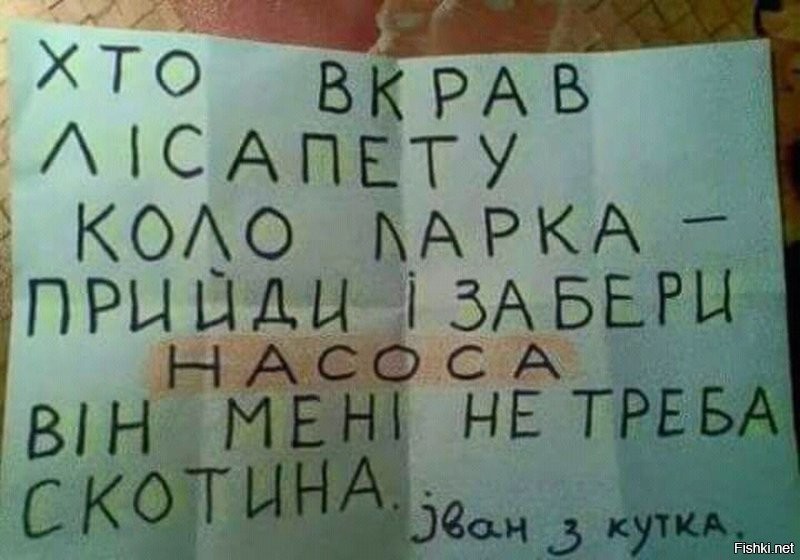 ХТО ВКРАВ
ЛІСАПЕТУ
КОЛО ПАРКА –
ПРИЙДИ І ЗАБЕРИ
НАСОСА
ВІН МЕНІ НЕ ТРЕБА
СКОТИНА.
Јван з кутка.
Fishki.net